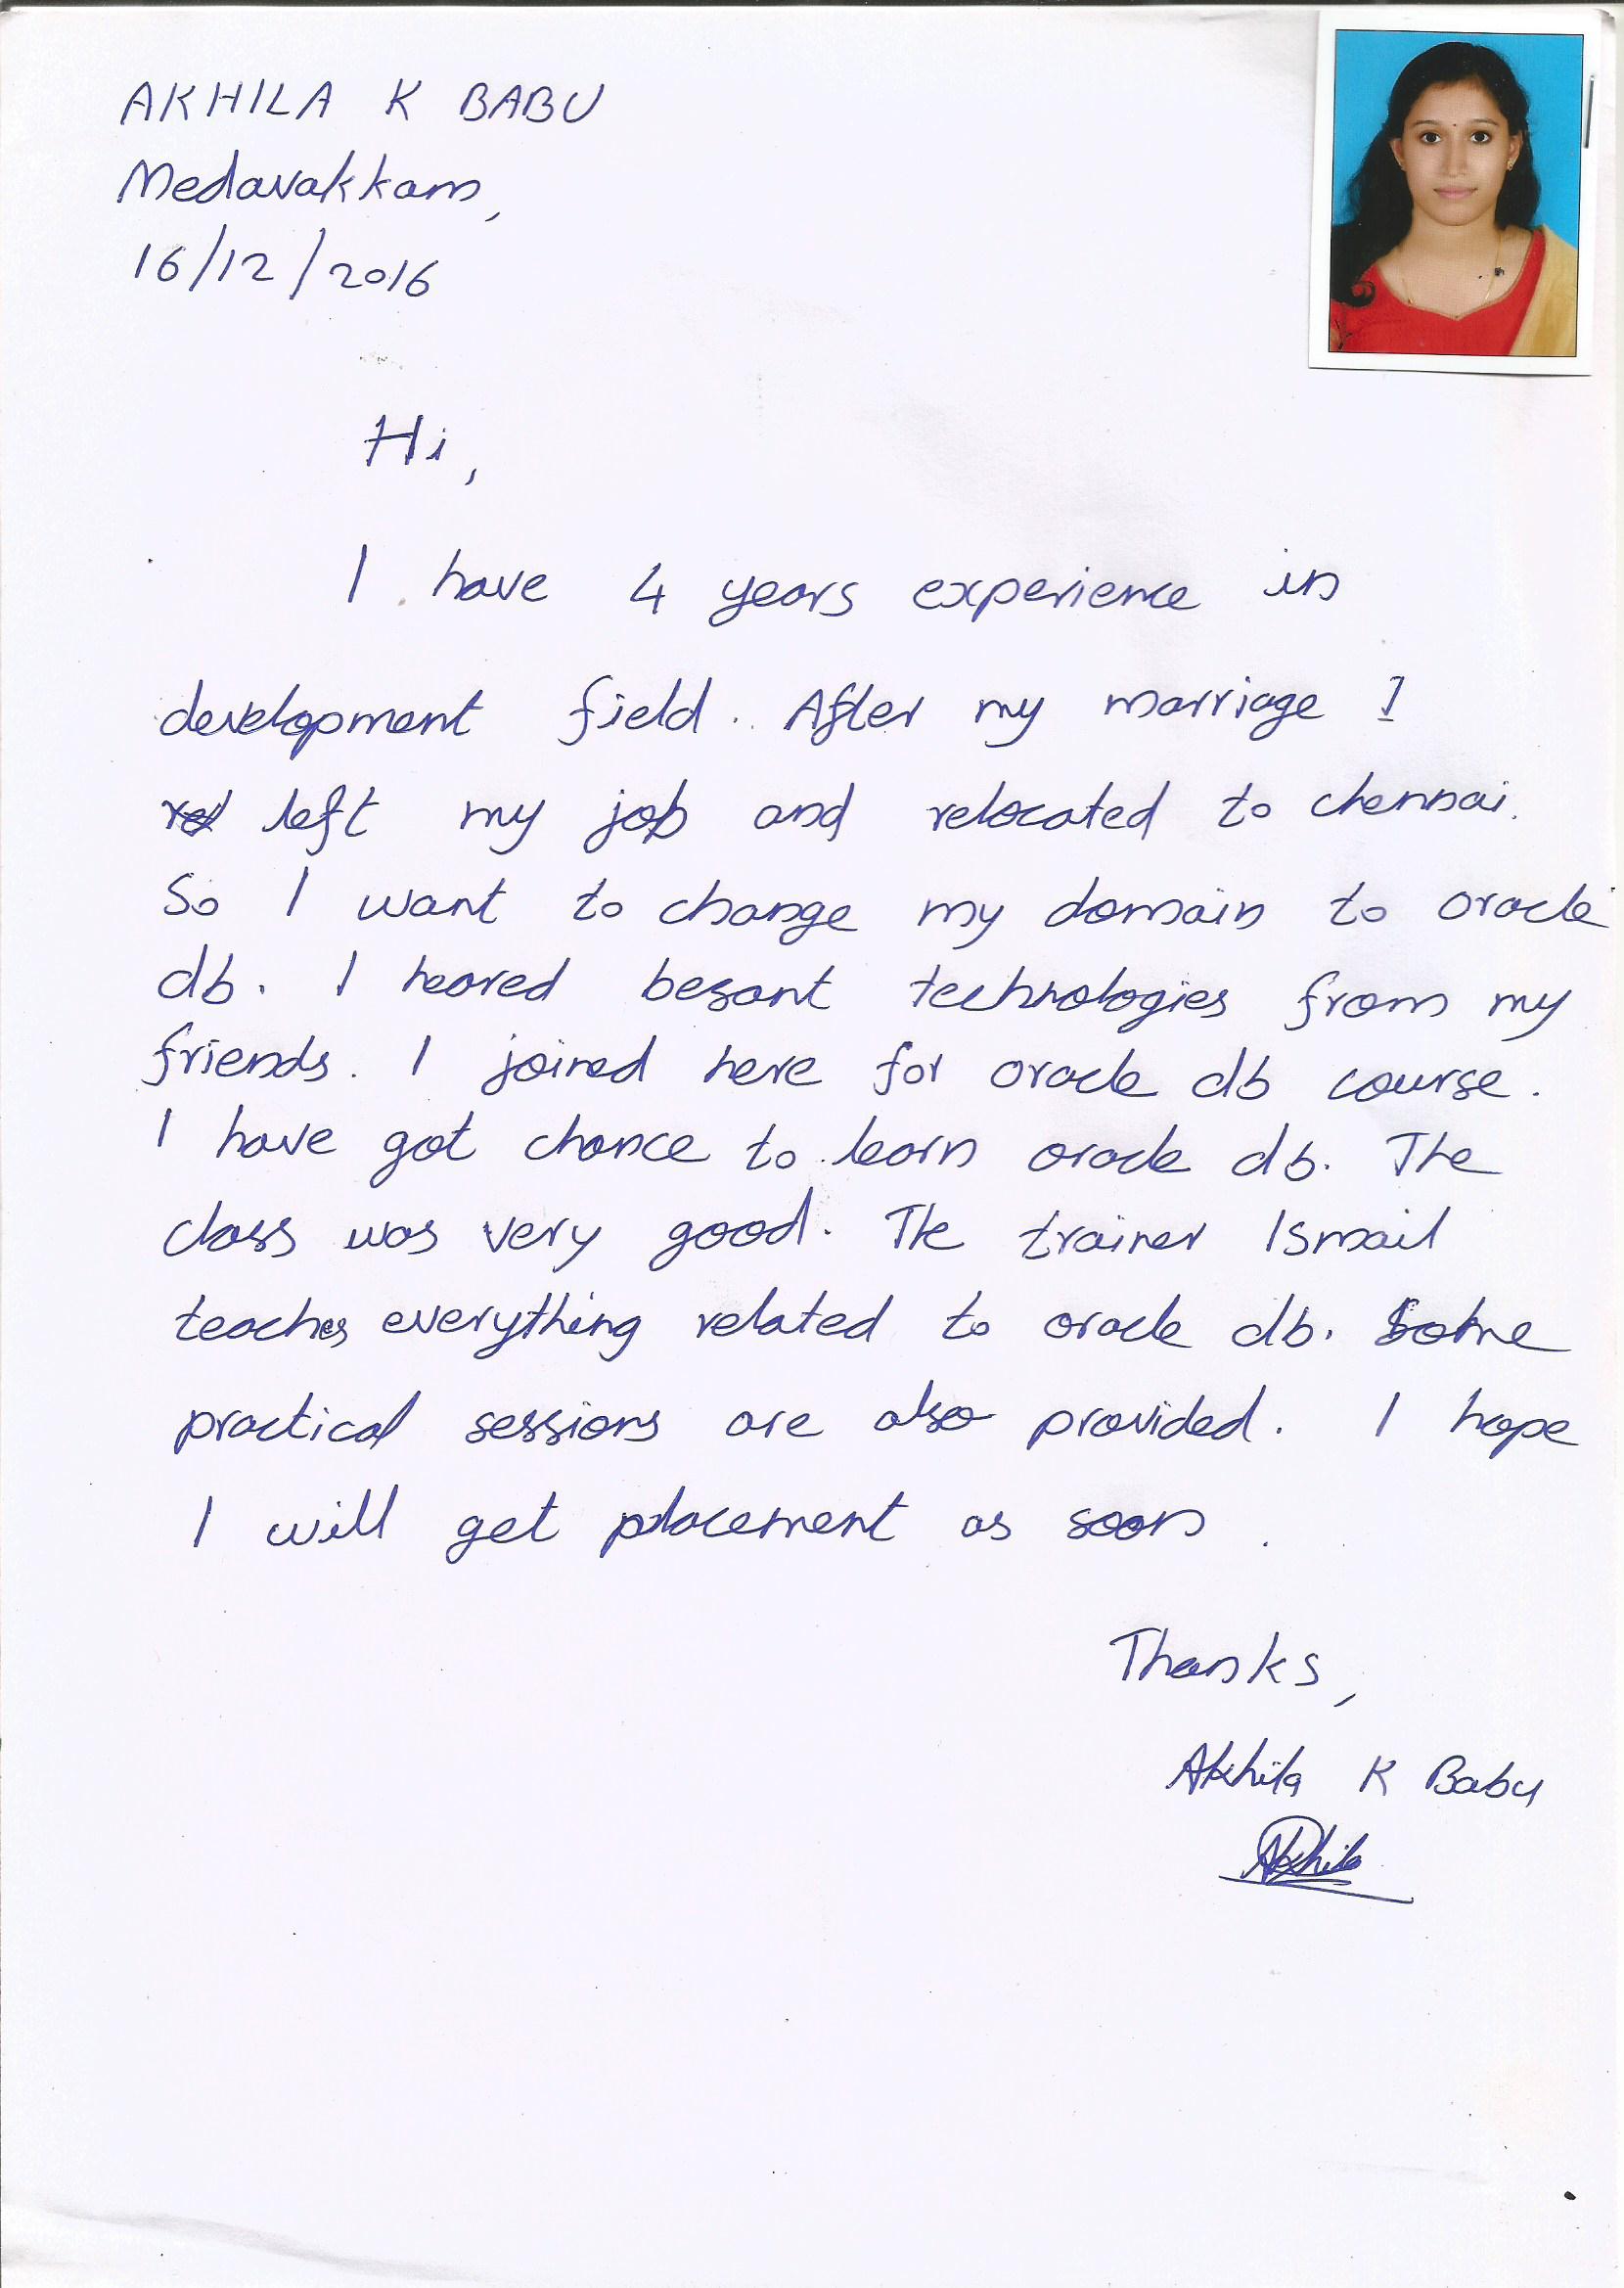 AKHILA K BABU
Medavakkam,
16/12/2016
Hi,
I have 4 years experience in
development field. After my marriage I
left my job and relocated to chennai.
So I want to change my domain to oracle
db. I heared besant technologies from my
friends. I joined here for oracle db course.
I have got chance to learn oracle db. The
class was very good. The trainer Ismail
teaches everything related to oracle db. Some
practical sessions are also provided. I hope
I will get placement as soon.
Thanks,
Akhila K Babu
Akhila